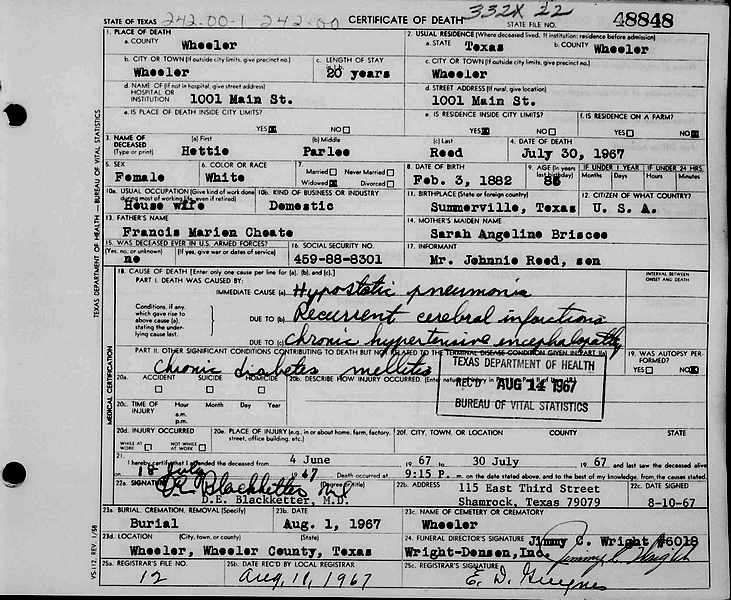 STATE OF TEXAS 242.00-1 242.00 CERTIFICATE OF DEATH 332X 22 STATE FILE NO. 48848
1. PLACE OF DEATH
a. COUNTY Wheeler
2. USUAL RESIDENCE (Where deceased lived. If institution: residence before admission)
a. STATE Texas b. COUNTY Wheeler
b. CITY OR TOWN (If outside city limits, give precinct no.) Wheeler
c. LENGTH OF STAY 20 years
c. CITY OR TOWN (If outside city limits, give precinct no.) Wheeler
d. NAME OF (If not in hospital, give street address) HOSPITAL OR INSTITUTION 1001 Main St.
d. STREET ADDRESS (If rural, give location) 1001 Main St.
e. IS PLACE OF DEATH INSIDE CITY LIMITS? YES NO
e. IS RESIDENCE INSIDE CITY LIMITS? YES NO
f. IS RESIDENCE ON A FARM? YES NO
3. NAME OF DECEASED (Type or print)
(a) First Hettie (b) Middle Parlee (c) Last Reed
4. DATE OF DEATH July 30, 1967
5. SEX Female
6. COLOR OR RACE White
7. Married Never Married
Widowed Divorced
8. DATE OF BIRTH Feb. 3, 1882
9. AGE (In years last birthday) 85
IF UNDER 1 YEAR Months Days
IF UNDER 24 HRS. Hours Minutes
10a. USUAL OCCUPATION (Give kind of work done during most of working life, even if retired) House wife
10b. KIND OF BUSINESS OR INDUSTRY Domestic
11. BIRTHPLACE (State or foreign country) Summerville, Texas
12. CITIZEN OF WHAT COUNTRY? U. S. A.
13. FATHER'S NAME Francis Marion Choate
14. MOTHER'S MAIDEN NAME Sarah Angeline Briscoe
15. WAS DECEASED EVER IN U.S. ARMED FORCES? (Yes, no, or unknown) (If yes, give war or dates of service) no
16. SOCIAL SECURITY NO. 459-88-8301
17. INFORMANT Mr. Johnnie Reed, son
18. CAUSE OF DEATH [Enter only one cause per line for (a), (b), and (c).]
INTERVAL BETWEEN ONSET AND DEATH
PART I. DEATH WAS CAUSED BY:
IMMEDIATE CAUSE (a) Hypostatic pneumonia
Conditions, if any, which gave rise to above cause (a), stating the underlying cause last.
DUE TO (b) Recurrent cerebral infarctions
DUE TO (c) Chronic hypertensive encephalopathy
PART II. OTHER SIGNIFICANT CONDITIONS CONTRIBUTING TO DEATH BUT NOT RELATED TO THE TERMINAL DISEASE CONDITION GIVEN IN PART I(a)
Chronic diabetes mellitis
19. WAS AUTOPSY PERFORMED? YES NO
TEXAS DEPARTMENT OF HEALTH
REC'D AUG 14 1967
BUREAU OF VITAL STATISTICS
20a. ACCIDENT SUICIDE HOMICIDE
20b. DESCRIBE HOW INJURY OCCURRED.
20c. TIME OF INJURY Hour Month Day Year
a.m.
p.m.
20d. INJURY OCCURRED
WHILE AT WORK NOT WHILE AT WORK
20e. PLACE OF INJURY (e.g., in or about home, farm, factory, street, office building, etc.)
20f. CITY, TOWN, OR LOCATION COUNTY STATE
21. I hereby certify that I attended the deceased from 4 June 1967 to 30 July 1967 and last saw the deceased alive
on 18 July 1967 Death occurred at 9:15 P. m. on the date stated above, and to the best of my knowledge, from the causes stated.
22a. SIGNATURE (Degree or title)
D.E. Blackketter, M.D.
22b. ADDRESS 115 East Third Street
Shamrock, Texas 79079
22c. DATE SIGNED 8-10-67
23a. BURIAL, CREMATION, REMOVAL (Specify) Burial
23b. DATE Aug. 1, 1967
23c. NAME OF CEMETERY OR CREMATORY Wheeler
23d. LOCATION (City, town, or county) (State) Wheeler, Wheeler County, Texas
24. FUNERAL DIRECTOR'S SIGNATURE Jimmy C. Wright #6018
Wright-Denson, Inc. Jimmy C. Wright
25a. REGISTRAR'S FILE NO. 12
25b. DATE REC'D BY LOCAL REGISTRAR Aug. 11, 1967
25c. REGISTRAR'S SIGNATURE E. D.
TEXAS DEPARTMENT OF HEALTH—BUREAU OF VITAL STATISTICS
MEDICAL CERTIFICATION
VS-112, REV. 1/58